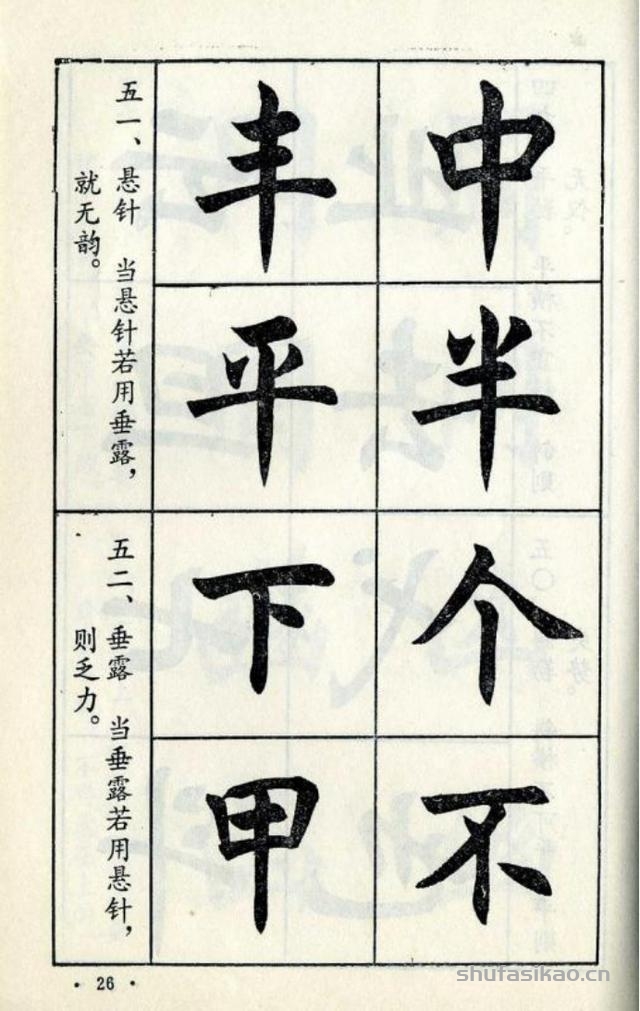 中
半
丰
平
五一、悬针 当悬针若用垂露，
就无韵。
个
不
下
甲
五二、垂露 当垂露若用悬针，
则乏力。
· 26 ·
shufasikao.cn